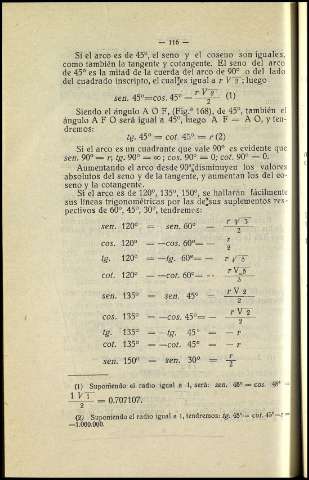 — 116 —
Si el arco es de 45°, el seno y el coseno son iguales,
como también la tangente y cotangente. El seno del arco
de 45° es la mitad de la cuerda del arco de 90° o del lado
del cuadrado inscripto, el cual es igual a r √2; luego
sen. 45°=cos. 45° = r √2 / 2 (1)
Siendo el ángulo A O F, (Fig.ª 168), de 45°, también el
ángulo A F O será igual a 45°, luego A F = A O, y ten-
dremos:
tg. 45° = cot. 45° = r (2)
Si el arco es un cuadrante que vale 90° es evidente que
sen. 90° = r; tg. 90° = ∞; cos. 90° = 0; cot. 90° = 0.
Aumentando el arco desde 90° disminuyen los valores
absolutos del seno y de la tangente, y aumentan los del co-
seno y la cotangente.
Si el arco es de 120°, 135°, 150°, se hallarán fácilmente
sus líneas trigonométricas por las de sus suplementos res-
pectivos de 60°, 45°, 30°, tendremos:
sen. 120° = sen. 60° = r √3 / 2
cos. 120° = —cos. 60°= — r / 2
tg. 120° = —tg. 60°= — r √3
cot. 120° = —cot. 60°= — r √3 / 3
sen. 135° = sen. 45° = r √2 / 2
cos. 135° = —cos. 45°= — r √2 / 2
tg. 135° = —tg. 45° = — r
cot. 135° = —cot. 45° = — r
sen. 150° = sen. 30° = r / 2
(1) Suponiendo el radio igual a 1, será: sen. 45° = cos. 45° =
1 √2 / 2 = 0.707107.
(2) Suponiendo el radio igual a 1, tendremos: tg. 45°= cot. 45°=r=
=1.000.000.